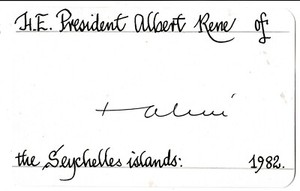 H.E. President Albert Rene of
the Seychelles islands: 1982.